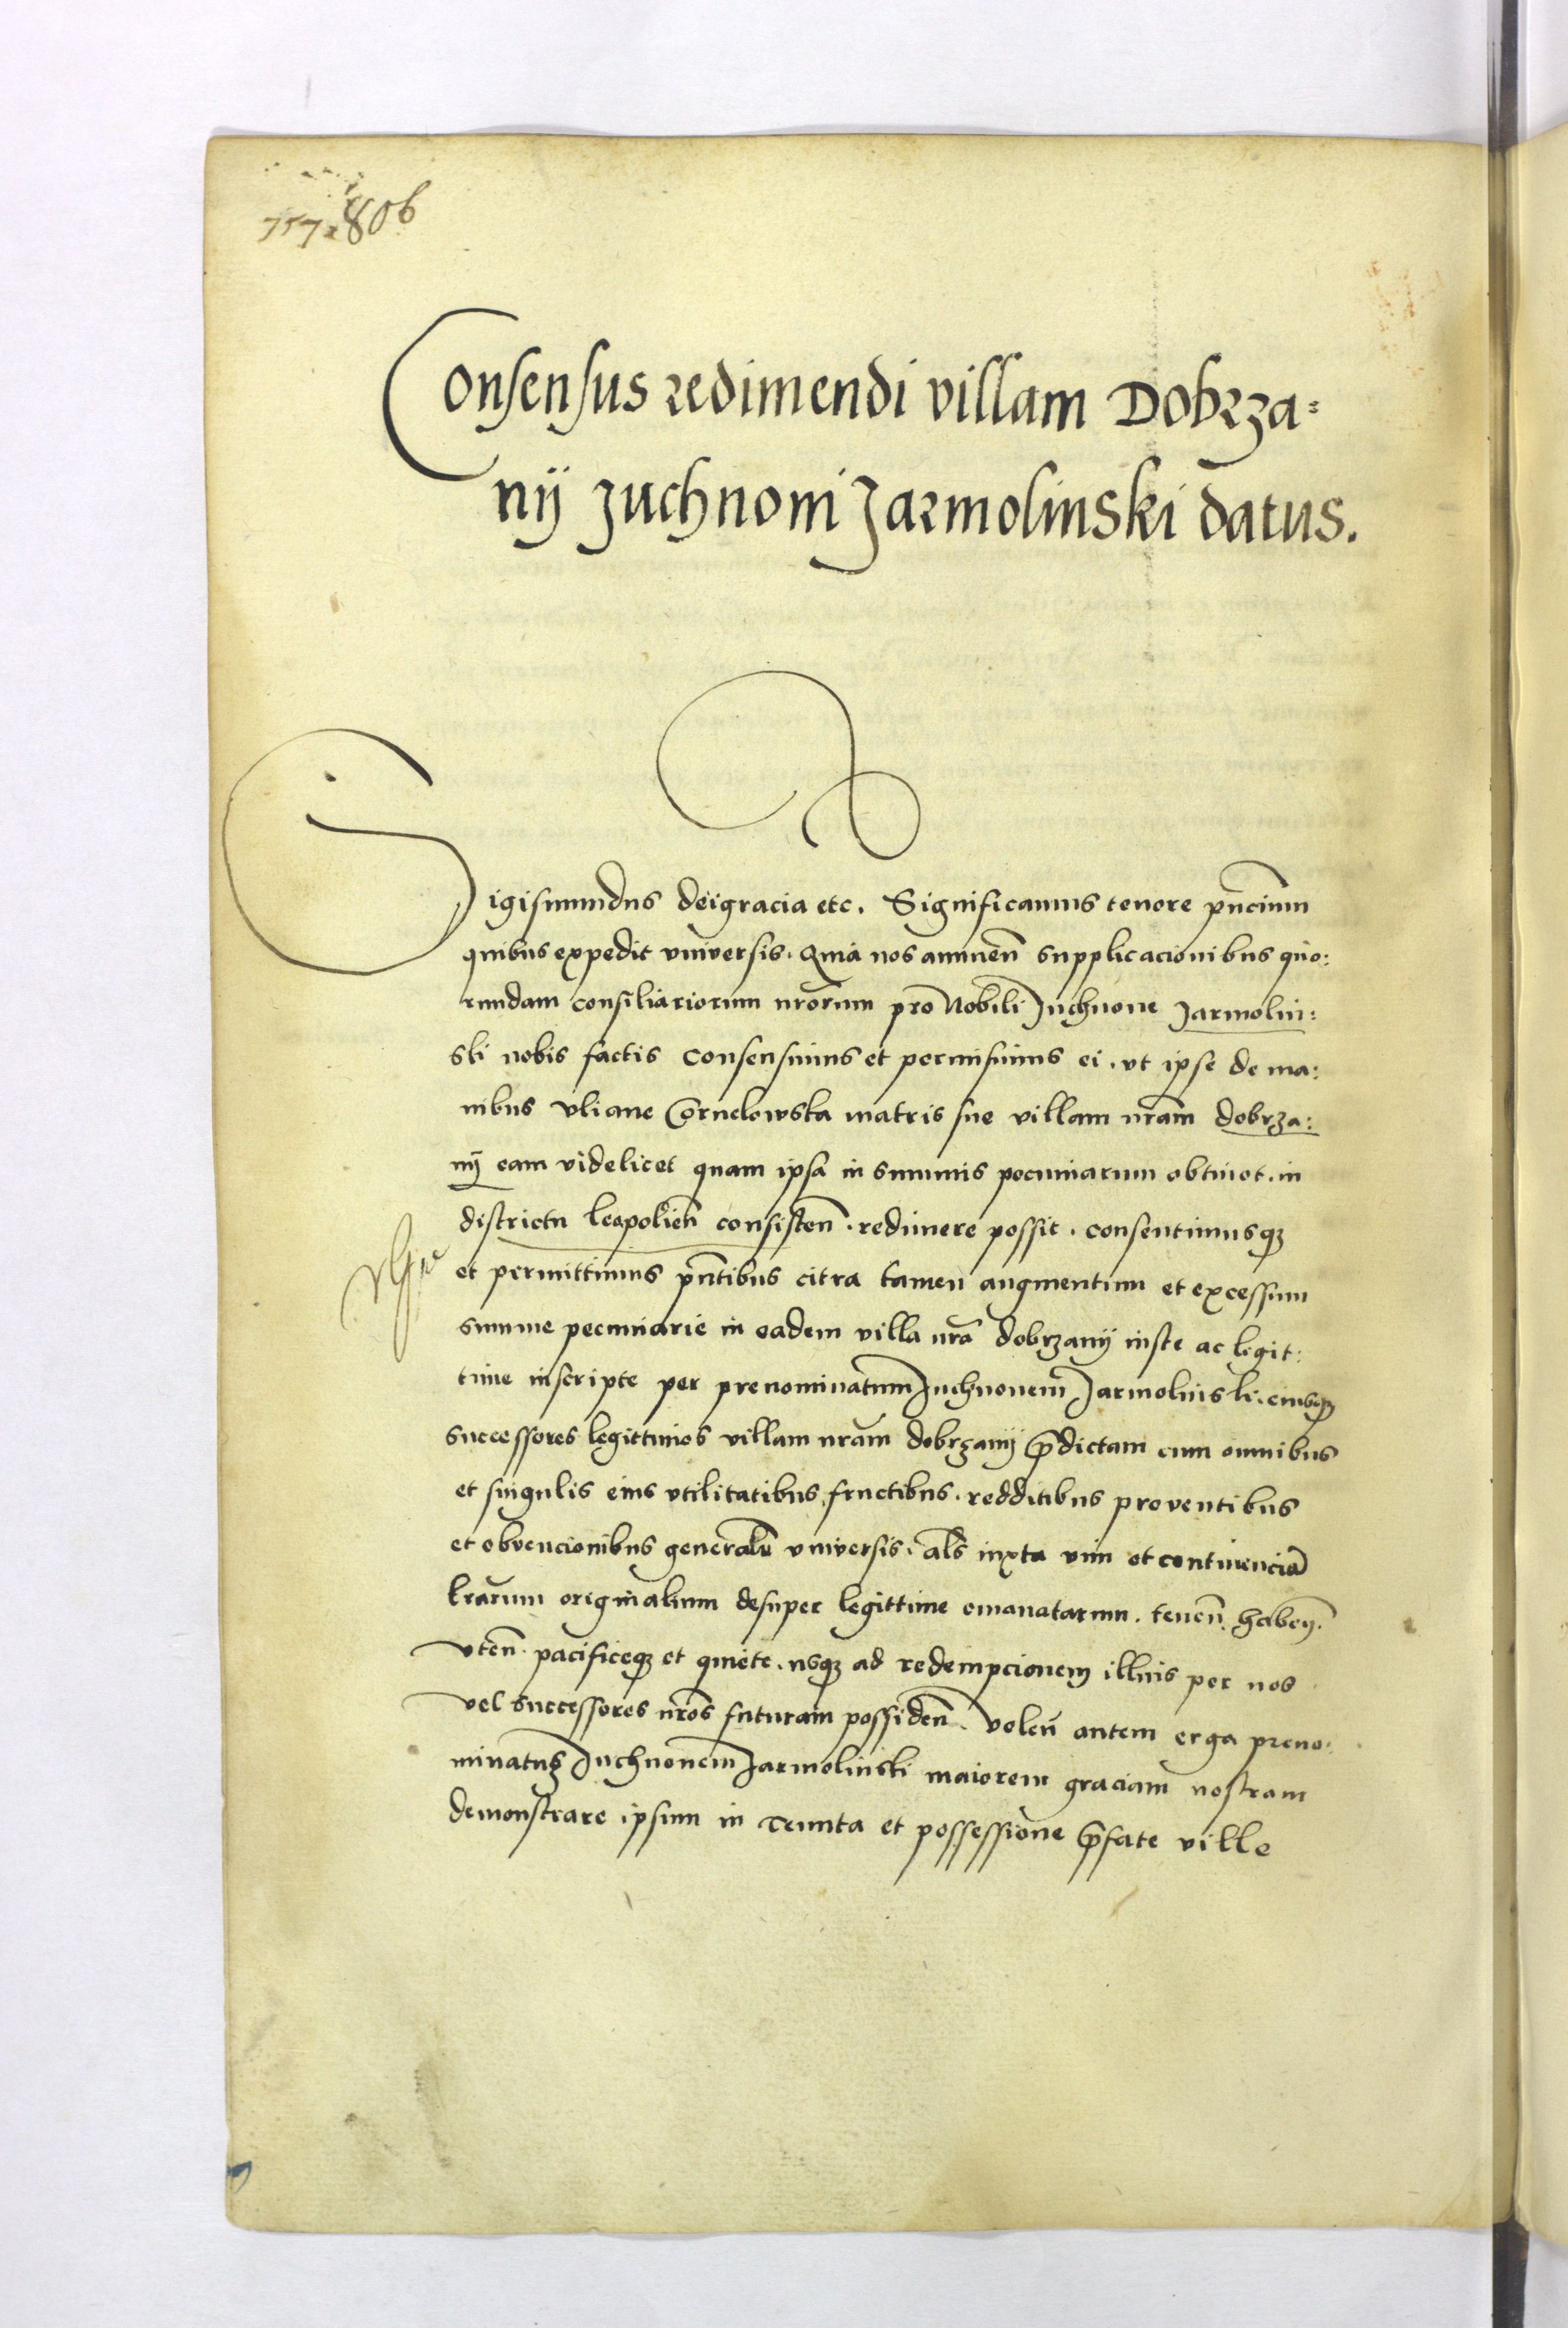 806
Consensus redimendi villam Dobrza=
nij Juchnoni Jarmolinski datus.
Sigismundus dei gracia etc. Significamus tenore pn̄cium
quibus expedit vniversis. Quia nos annuen̄ supplicacionibus quo:
rundam consiliariorum nr̄orum pro Nobili Juchnone Jarmolin:
ski nobis factis consensimus et permisimus ei. vt ipse de ma:
nibus Vliane Cornelowska matris sue villam nr̄am dobrza:
nij eam videlicet quam ipsa in summis pecuniarum obtinet. in
districtu leopolien̄ consisten̄. redimere possit. consentimusqȝ
et permittimus pn̄tibus citra tamen augmentum et excessum
summe pecuniarie in eadem villa nr̄a dobrzanij iuste ac legit:
time inscripte per prenominatum Juchnonem Jarmolinski. eiusqȝ
successores legittimos villam nr̄am dobrzanij p̄dictam cum omnibus
et singulis eius vtilitatibus, fructibus. redditibus proventibus
et obvencionibus generalr̄ vniversis. al̄s iuxta vim et continenciā
lr̄arum originalium desuper legittime emanatarum. tenen̄. haben̄.
vten̄. pacificeqȝ et quiete. usqȝ ad redempcionem illius per nos
vel successores nr̄os futuram possiden̄. Volen̄ autem erga preno:
minatuȝ Juchnonem Jarmolinski maiorem graciam nostram
demonstrare ipsum in tenuta et possessione p̄fate ville